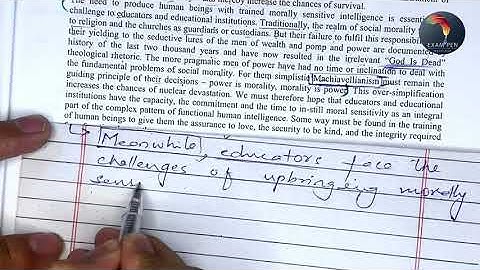 increase the chances of survival.
The need to produce human beings with trained morally sensitive intelligence is essentially a
challenge to educators and educational institutions. Traditionally, the realm of social morality
to religion and the churches as guardians or custodians. But their failure to fulfil this responsibility
their yielding to the seductive lures of the men of wealth and pomp and power are documented
history of the last two thousand years and have now resulted in the irrelevant "God Is Dead"
theological rhetoric. The more pragmatic men of power have had no time or inclination to deal with
the fundamental problems of social morality. For them simplistic Machiavellianism must remain the
guiding principle of their decisions – power is morality, morality is power. This over-simplification
increases the chances of nuclear devastation. We must therefore hope that educators and educational
institutions have the capacity, the commitment and the time to in-still moral sensitivity as an integral
part of the complex pattern of functional human intelligence. Some way must be found in the training
of human beings to give them the assurance to love, the security to be kind, and the integrity required
EXAM PEN
Meanwhile, educators face the
challenges of upbringing morally
sens